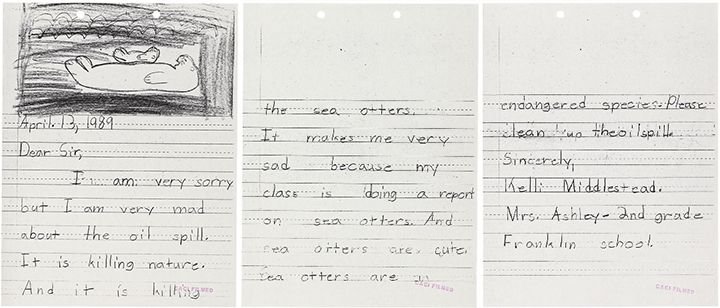 April 13, 1989
Dear Sir,
I am very sorry
but I am very mad
about the oil spill.
It is killing nature.
And it is killing
CACI FILMED
the sea otters.
It makes me very
sad because my
class is doing a report
on sea otters. And
sea otters are cute.
Sea otters are
CACI FILMED
endangered species. Please
clean up the oil spill.
Sincerely,
Kelli Middlestead.
Mrs. Ashley-2nd grade
Franklin school.
CACI FILMED